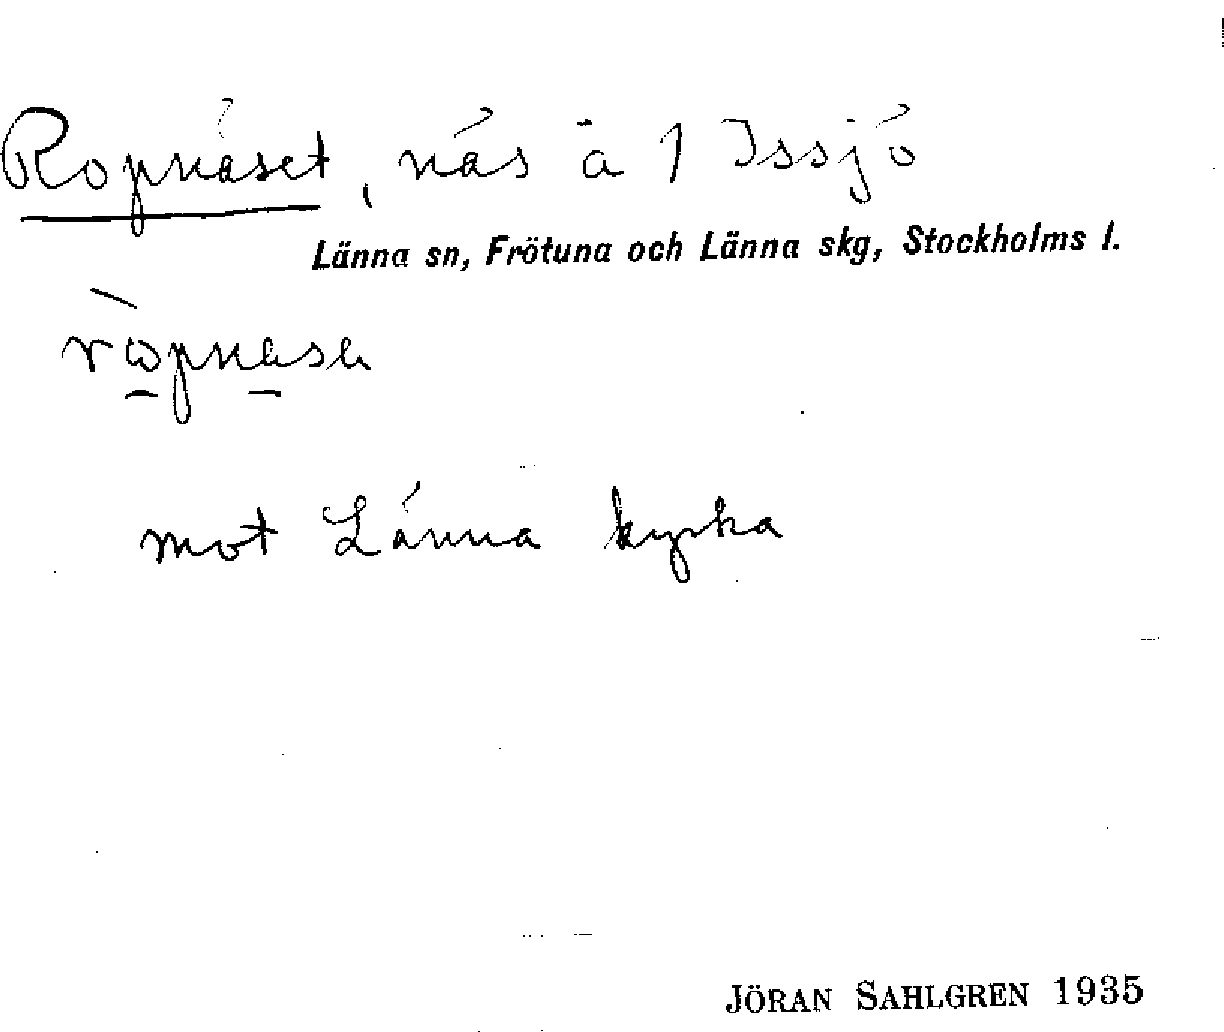 Ropnäset, näs å 1 Issjö
Länna sn, Frötuna och Länna skg, Stockholms l.
mot Länna kyrka
JÖRAN SAHLGREN 1935